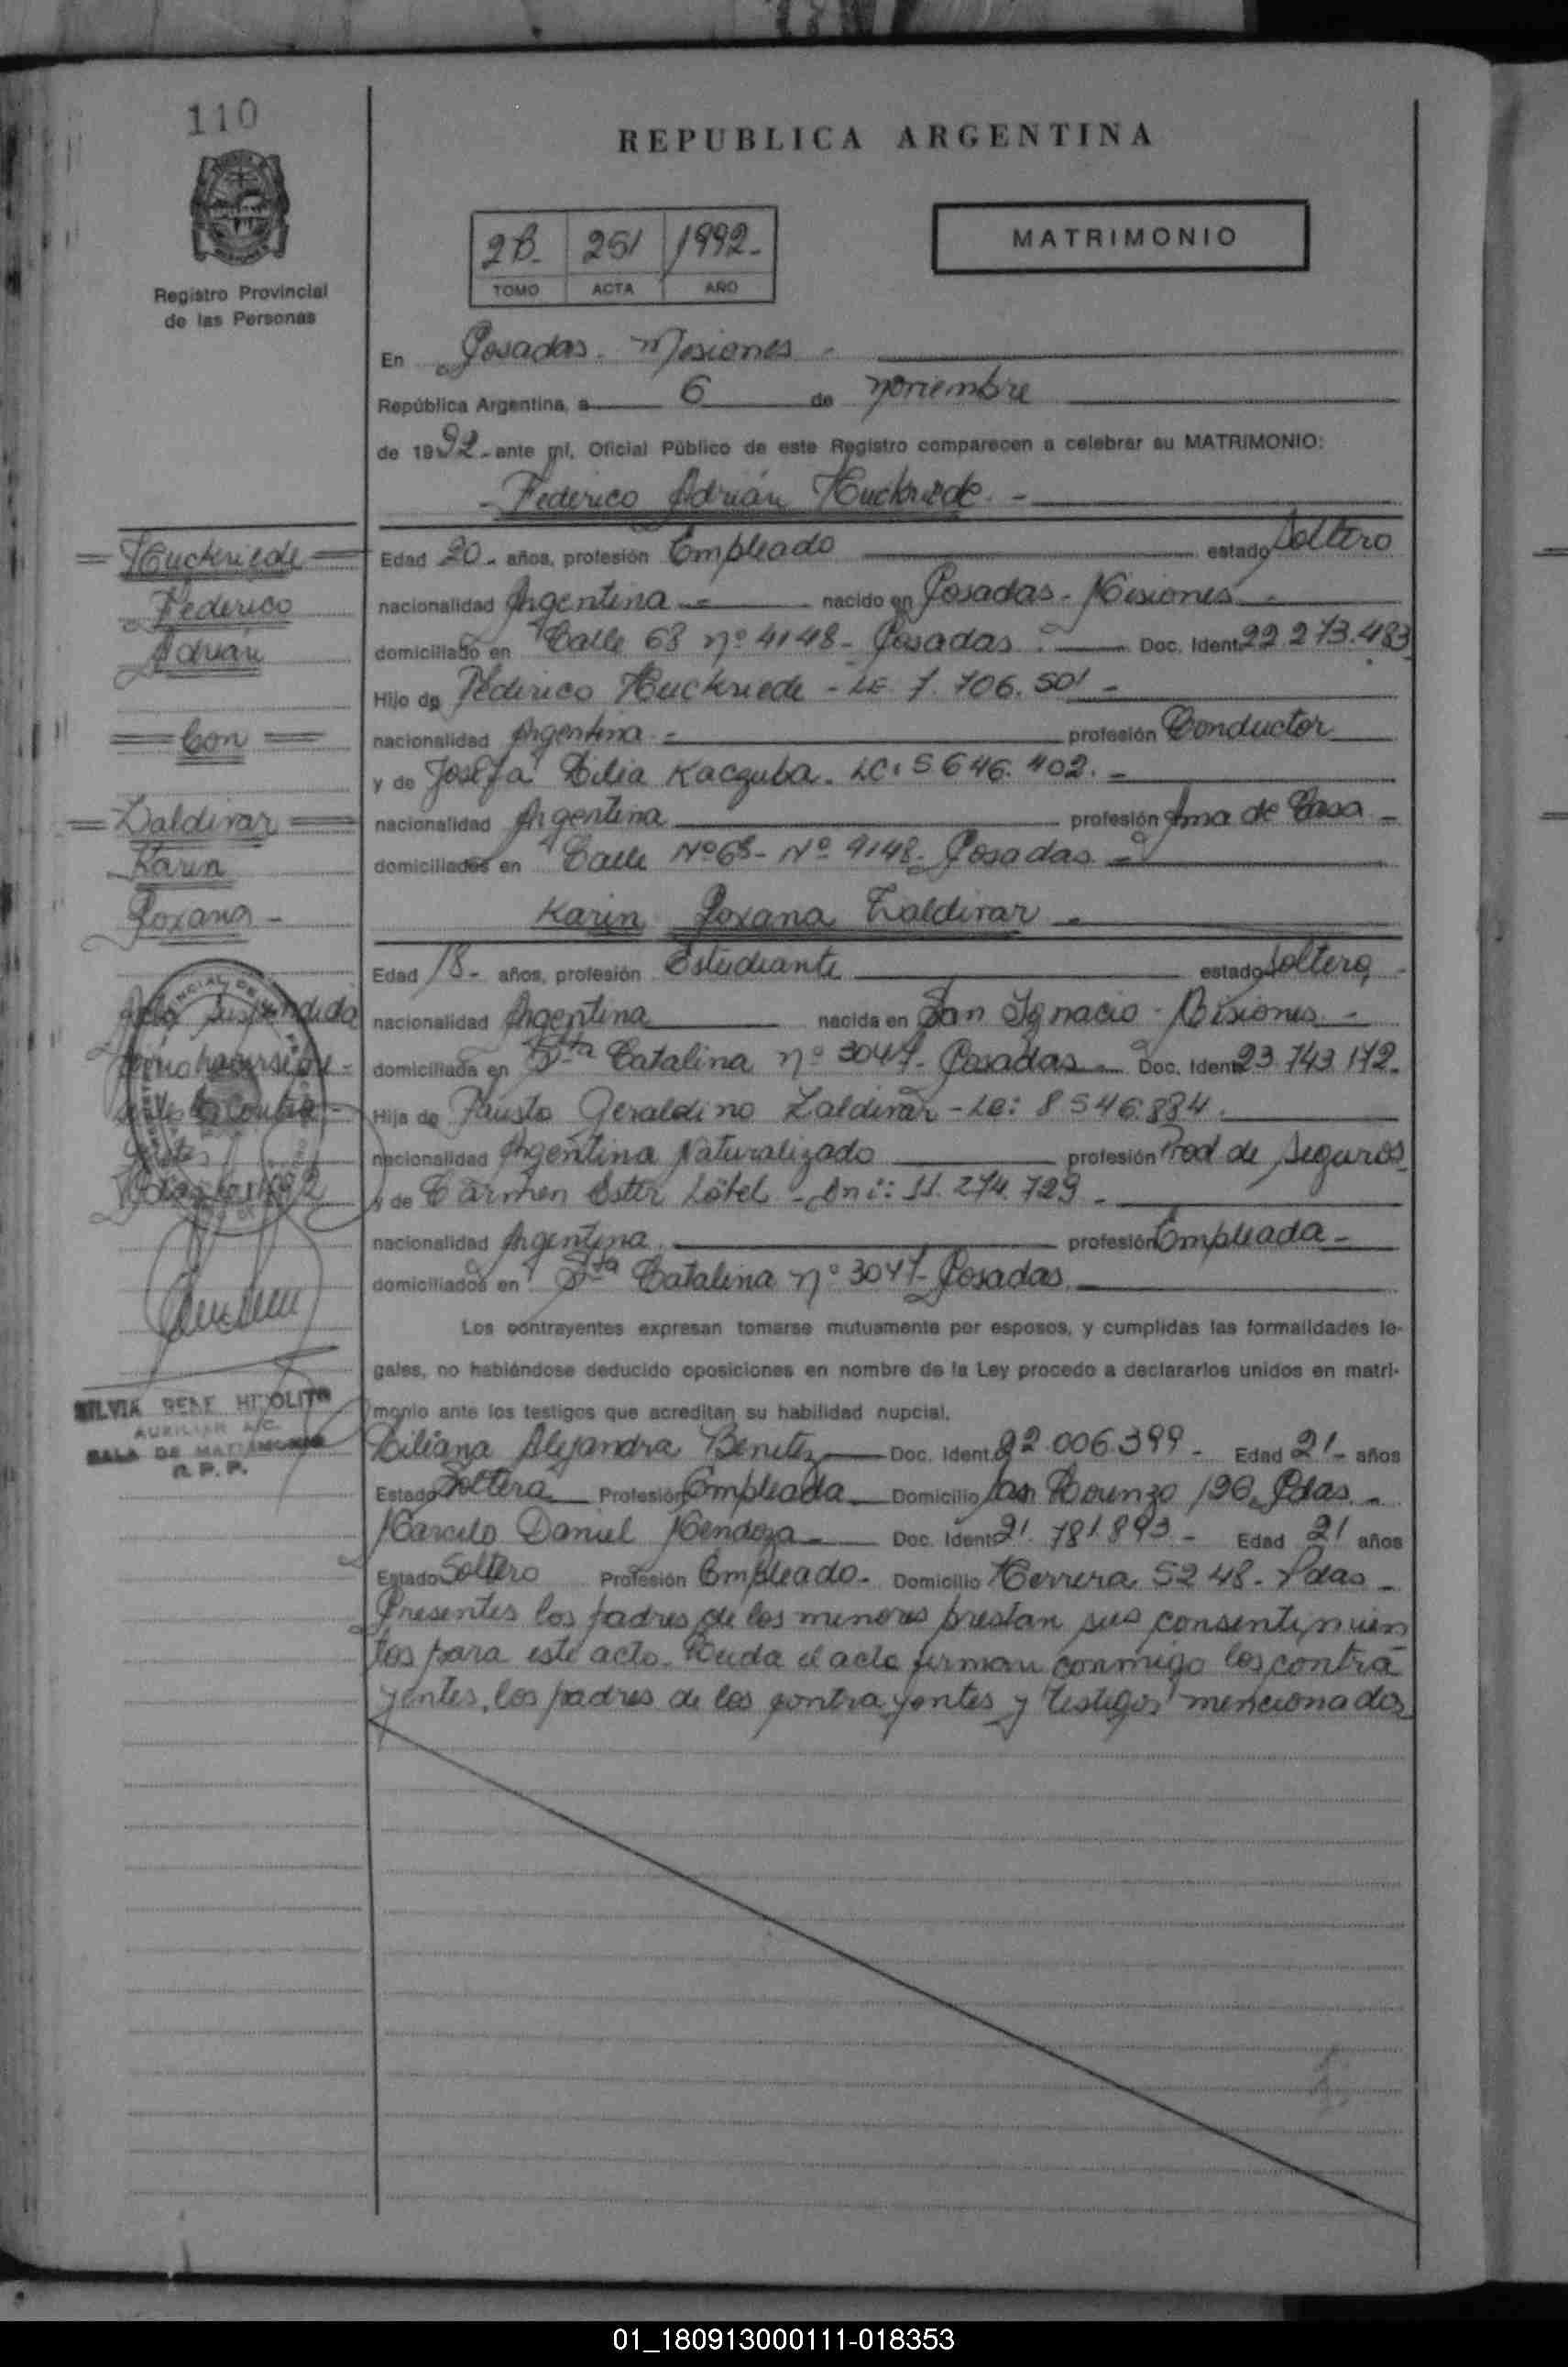 110
REPUBLICA ARGENTINA
2B- 251 1992-
TOMO ACTA AÑO
MATRIMONIO
Registro Provincial
de las Personas
En Posadas - Misiones -
República Argentina, a 6 de noviembre
de 1992- ante mí, Oficial Público de este Registro comparecen a celebrar su MATRIMONIO:
- Federico Adrián Huckriede - -
Huckriede
Federico
Adrián
Con
Zaldivar
Karin
Roxana -
Edad 20- años, profesión Empleado estado Soltero
nacionalidad Argentina - nacido en Posadas - Misiones -
domiciliado en Calle 63 nº 4148 - Posadas - Doc. Ident. 22.273.483
Hijo de Federico Huckriede - LE 7.706.501 -
nacionalidad Argentina - profesión Conductor
y de Josefa Lilia Kaczuba - LC: 5646.402. -
nacionalidad Argentina profesión Ama de Casa -
domiciliados en Calle Nº 63 - Nº 4148 - Posadas -
Karin Roxana Zaldivar -
Edad 18- años, profesión Estudiante estado Soltera -
nacionalidad Argentina nacida en San Ignacio - Misiones -
domiciliada en Sta Catalina nº 3047 - Posadas - Doc. Ident. 23.743.172-
Hija de Fausto Geraldino Zaldivar - LE: 8546.884.
nacionalidad Argentina Naturalizado profesión Prod de Seguros
y de Carmen Ester Lötel - Dni: 11.274.729 -
nacionalidad Argentina profesión Empleada -
domiciliados en Sta Catalina nº 3047 - Posadas
Los contrayentes expresan tomarse mutuamente por esposos, y cumplidas las formalidades le-
gales, no habiéndose deducido oposiciones en nombre de la Ley procedo a declararlos unidos en matri-
monio ante los testigos que acreditan su habilidad nupcial.
Liliana Alejandra Benitez Doc. Ident. 22.006.399 - Edad 21- años
Estado Soltera Profesión Empleada Domicilio San Lorenzo 196. Pdas. -
Marcelo Daniel Mendoza - Doc. Ident. 21.781.893 - Edad 21 años
Estado Soltero Profesión Empleado - Domicilio Herrera 5248 - Pdas -
Presentes los padres de los menores prestan sus consentimien
tos para este acto. Leida el acta firman conmigo los contra
yentes, los padres de los contrayentes y testigos mencionados
Acta suspendida
SILVIA RENE HIPOLITO
AUXILIAR A/C.
SALA DE MATRIMONIO
R. P. P.
01_180913000111-018353